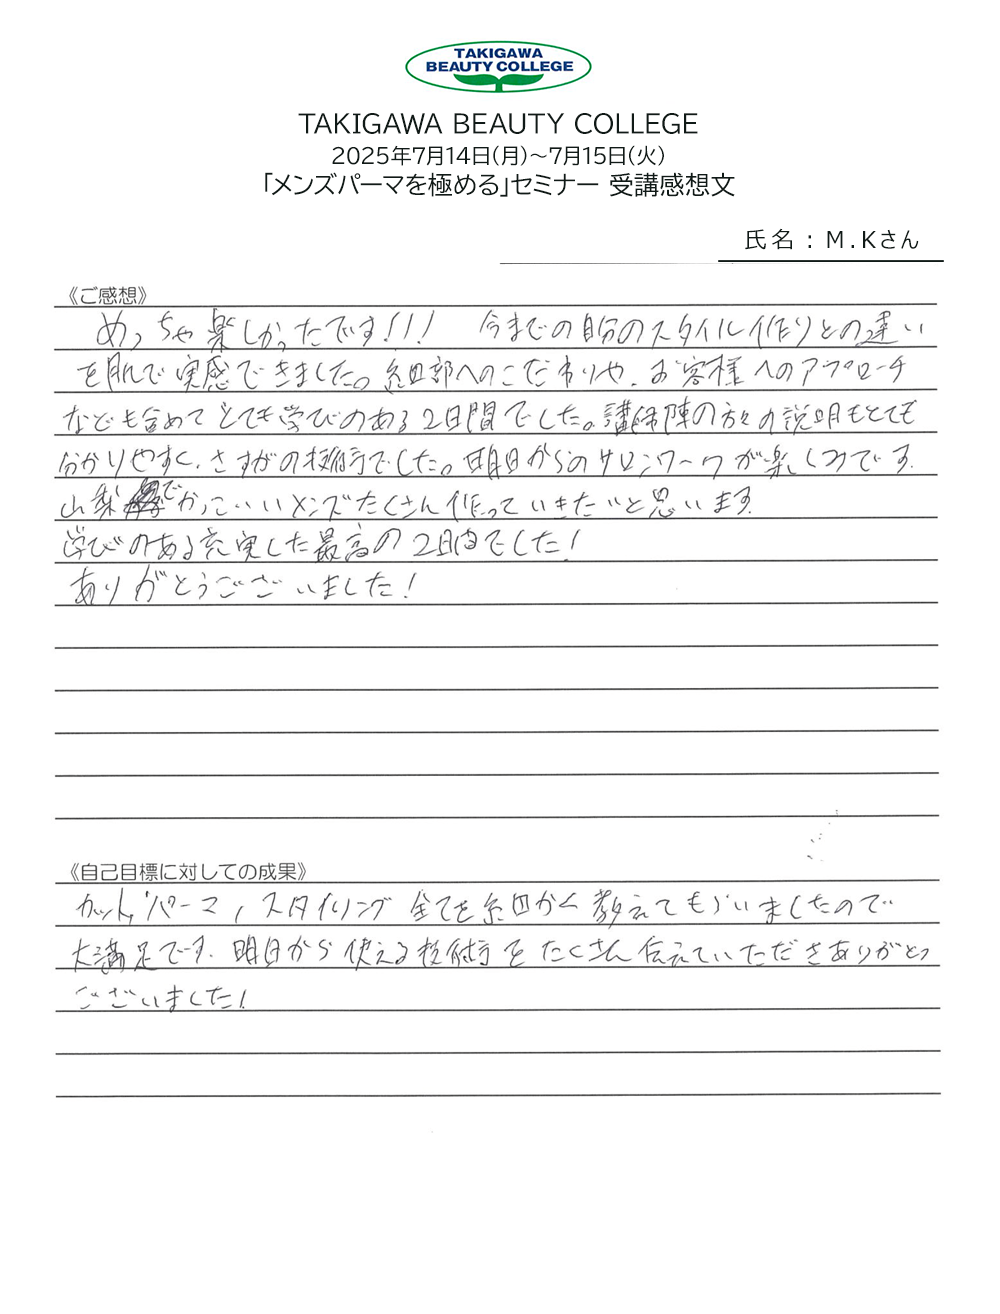 TAKIGAWA
BEAUTY COLLEGE
TAKIGAWA BEAUTY COLLEGE
2025年7月14日(月)～7月15日(火)
「メンズパーマを極める」セミナー 受講感想文
氏名：M.Kさん
《ご感想》
めっちゃ楽しかったです!!! 今までの自分のスタイル作りとの違い
を肌で実感できました。細部へのこだわりや、お客様へのアプローチ
なども含めてとても学びのある2日間でした。講師陣の方々の説明もとても
分かりやすく、さすがの技術でした。明日からのサロンワークが楽しみです。
山梨でかっこいいメンズたくさん作っていきたいと思います。
学びのある充実した最高の2日間でした!
ありがとうございました!
《自己目標に対しての成果》
カット、パーマ、スタイリング全てを細かく教えてもらいましたので
大満足です。明日から使える技術をたくさん伝えていただきありがとう
ございました!